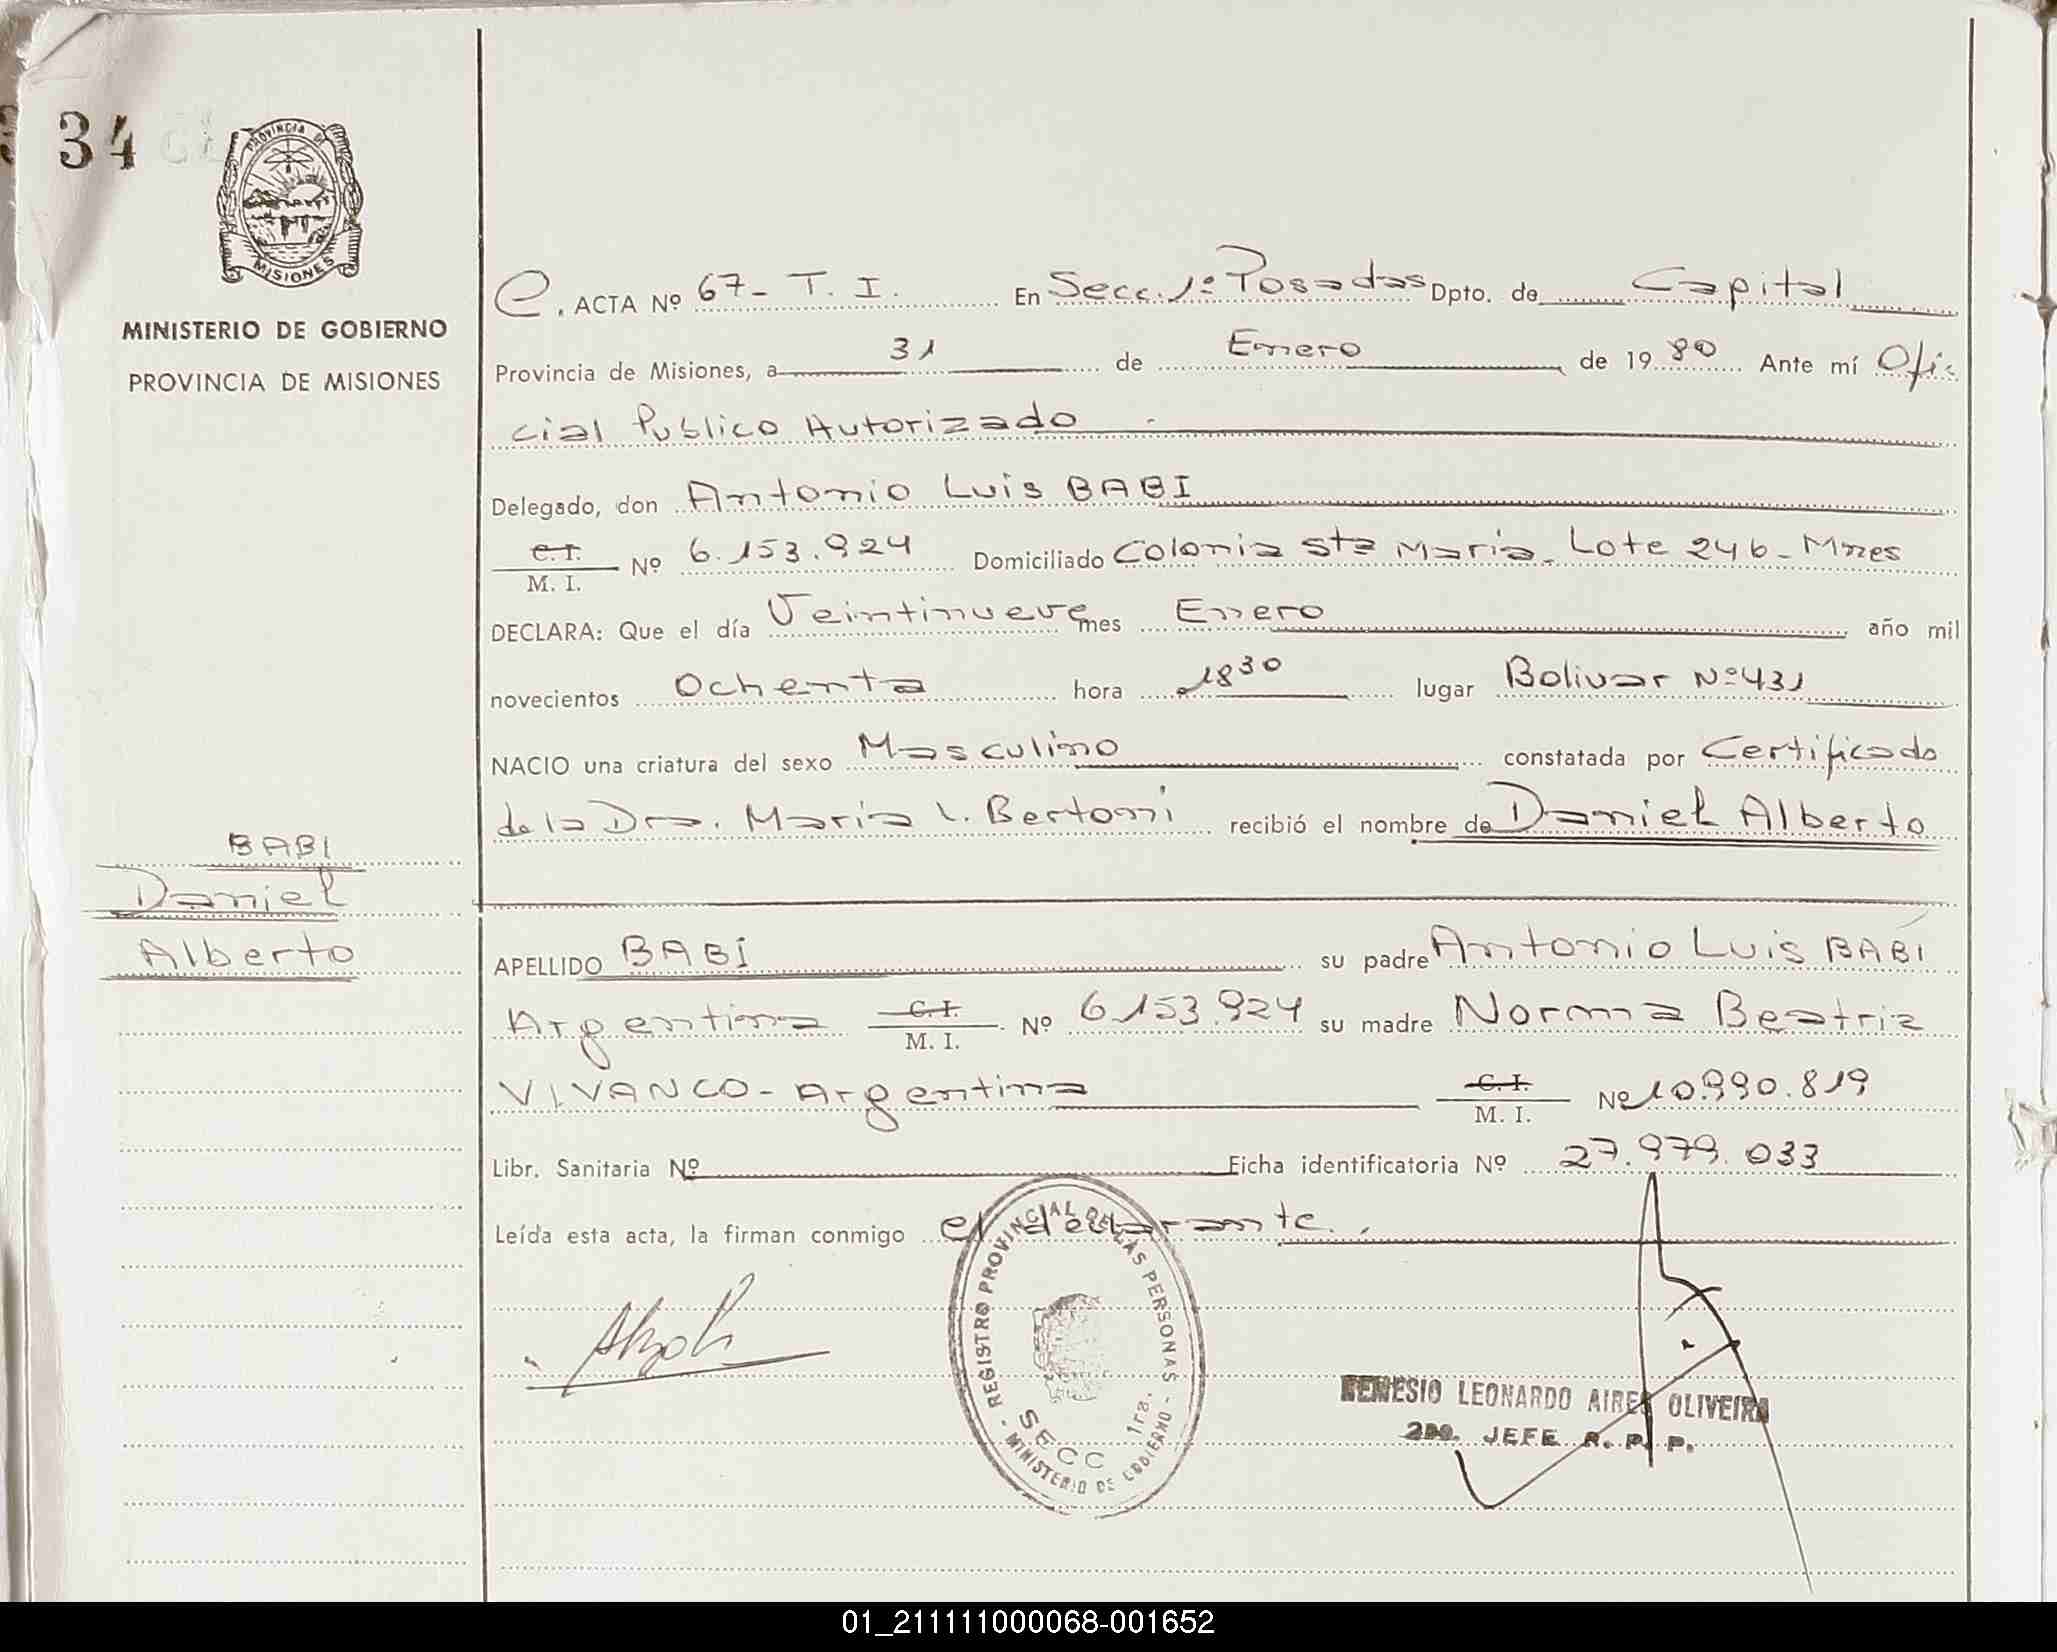 34
PROVINCIA DE
MISIONES
MINISTERIO DE GOBIERNO
PROVINCIA DE MISIONES
BABI
Daniel
Alberto
C. ACTA Nº 67- T. I. En Secc. 1º Posadas Dpto. de Capital
Provincia de Misiones, a 31 de Enero de 19 80 Ante mí Ofi-
cial Publico Autorizado
Delegado, don Antonio Luis BABI
C. I. M. I. Nº 6.153.924 Domiciliado Colonia Sta Maria - Lote 246 - Mnes
DECLARA: Que el día Veintinueve mes Enero año mil
novecientos Ochenta hora 18 30 lugar Bolivar Nº 431
NACIO una criatura del sexo Masculino constatada por Certificado
de la Dra. Maria L. Bertoni recibió el nombre de Daniel Alberto
APELLIDO BABÍ su padre Antonio Luis BABÍ
Argentina C. I. M. I. Nº 6.153.924 su madre Norma Beatriz
VIVANCO - Argentina C. I. M. I. Nº 10.990.819
Libr. Sanitaria Nº Ficha identificatoria Nº 27.979.033
Leída esta acta, la firman conmigo el declarante.
REGISTRO PROVINCIAL DE LAS PERSONAS - MINISTERIO DE GOBIERNO -
SECC 1ra.
NEMESIO LEONARDO AIRES OLIVEIRA
2DO. JEFE R. P. P.
01_211111000068-001652